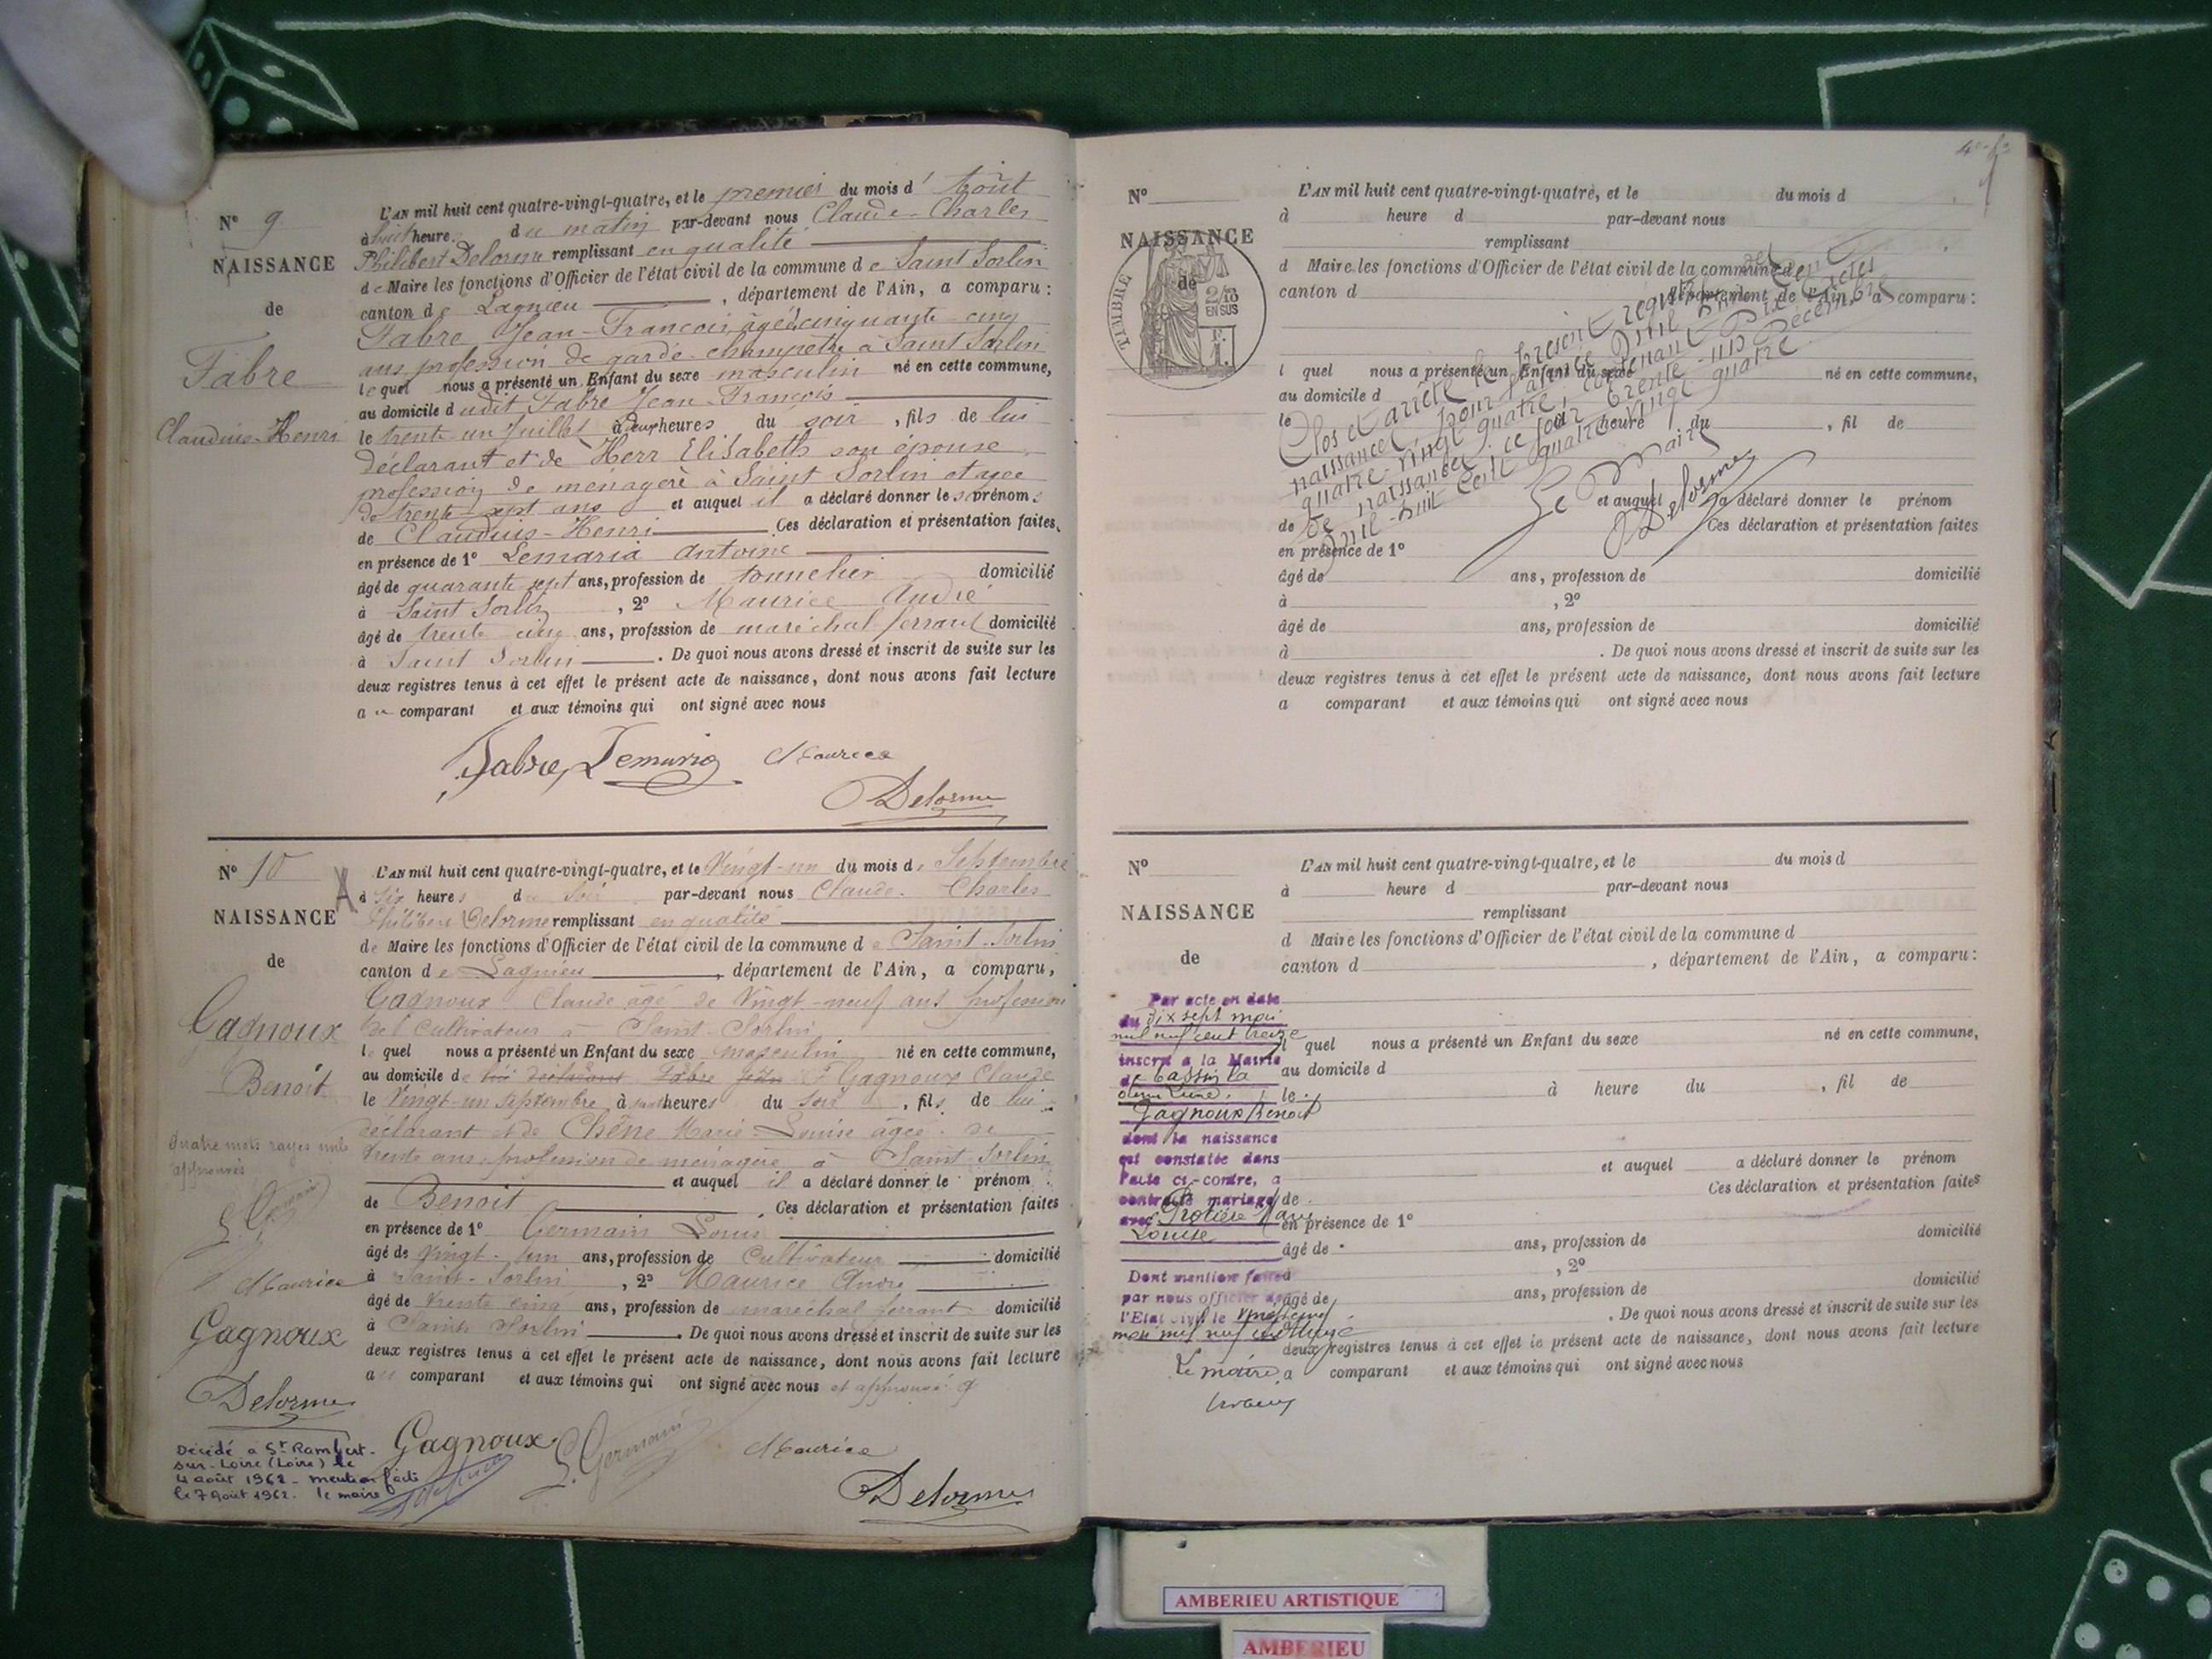 N° 9
NAISSANCE
de
Fabre
Claudius-Henri
L'AN mil huit cent quatre-vingt-quatre, et le premier du mois d'Août
à huit heure du matin par-devant nous Claude-Charles
Philibert Delorme remplissant en qualité
de Maire les fonctions d'Officier de l'état civil de la commune de Saint Sorlin
canton de Lagnieu, département de l'Ain, a comparu :
Fabre Jean-François, âgé cinquante-cinq
ans profession de garde-champetre à Saint Sorlin
lequel nous a présenté un Enfant du sexe masculin né en cette commune,
au domicile dudit Fabre Jean-François
le trente-un Juillet à heures du soir, fils de lui
déclarant et de Herr Elisabeth son épouse
profession de ménagère à Saint Sorlin et agée
de trente sept ans et auquel il a déclaré donner les prénoms
de Claudius-Henri Ces déclaration et présentation faites
en présence de 1° Lemaria Antoine
âgé de quarante sept ans, profession de tonnelier domicilié
à Saint Sorlin, 2° Maurice André
âgé de trente cinq ans, profession de maréchal ferrant domicilié
à Saint Sorlin. De quoi nous avons dressé et inscrit de suite sur les
deux registres tenus à cet effet le présent acte de naissance, dont nous avons fait lecture
au comparant et aux témoins qui ont signé avec nous
Fabre Lemaria Maurice
Delorme
N° 10
NAISSANCE
de
Gagnoux
Benoît
Quatre mots rayés nuls
approuvés
L. Germain
Maurice
Gagnoux
Delorme
L'AN mil huit cent quatre-vingt-quatre, et le Vingt-un du mois de Septembre
à Six heures du Soir par-devant nous Claude-Charles
Philibert Delorme remplissant en qualité
de Maire les fonctions d'Officier de l'état civil de la commune de Saint-Sorlin
canton de Lagnieu, département de l'Ain, a comparu,
Gagnoux Claude âgé de Vingt-neuf ans profession
de Cultivateur à Saint-Sorlin
lequel nous a présenté un Enfant du sexe masculin né en cette commune,
au domicile de lui déclarant Fabre Jean Gagnoux Claude
le Vingt-un Septembre à heures du Soir, fils de lui
déclarant et de Chêne Marie-Louise âgée de
trente ans, profession de ménagère à Saint Sorlin
et auquel il a déclaré donner le prénom
de Benoit Ces déclaration et présentation faites
en présence de 1° Germain Louis
âgé de Vingt-un ans, profession de Cultivateur domicilié
à Saint-Sorlin, 2° Maurice André
âgé de trente cinq ans, profession de maréchal ferrant domicilié
à Saint Sorlin. De quoi nous avons dressé et inscrit de suite sur les
deux registres tenus à cet effet le présent acte de naissance, dont nous avons fait lecture
au comparant et aux témoins qui ont signé avec nous et approuvé
Gagnoux L. Germain Maurice
Delorme
Décédé à St Rambert-
sur-Loire (Loire) le
4 août 1962 - mention faite
le 7 Août 1962. le maire
N°
NAISSANCE
de
TIMBRE
2/10
EN SUS
L'AN mil huit cent quatre-vingt-quatre, et le du mois d
à heure d par-devant nous
remplissant
d Maire les fonctions d'Officier de l'état civil de la commune d
canton d département de l'Ain, a comparu :
l quel nous a présenté un Enfant du sexe né en cette commune,
au domicile d
le heure du , fil de
et auquel a déclaré donner le prénom
de Ces déclaration et présentation faites
en présence de 1°
âgé de ans, profession de domicilié
à , 2°
âgé de ans, profession de domicilié
à . De quoi nous avons dressé et inscrit de suite sur les
deux registres tenus à cet effet le présent acte de naissance, dont nous avons fait lecture
a comparant et aux témoins qui ont signé avec nous
Clos et arrêté le présent registre des
naissances pour l'année Mil huit cent
quatre-vingt quatre, contenant Dix actes
de naissances, ce jour trente-un Décembre
mil-huit cent quatre vingt quatre
Le Maire
Delorme
N°
NAISSANCE
de
Par acte en date
du dix sept mai
mil neuf cent treize
inscrit à la Mairie
de
Gagnoux Benoit
dont la naissance
est constatée dans
l'acte ci-contre, a
contracté mariage
avec Marie
Louise
Dont mention faite
par nous officier de
l'Etat civil le
mai mil neuf cent treize
Le maire
L'AN mil huit cent quatre-vingt-quatre, et le du mois d
à heure d par-devant nous
remplissant
d Maire les fonctions d'Officier de l'état civil de la commune d
canton d , département de l'Ain, a comparu :
l quel nous a présenté un Enfant du sexe né en cette commune,
au domicile d
le à heure du , fil de
et auquel a déclaré donner le prénom
de Ces déclaration et présentation faites
en présence de 1°
âgé de ans, profession de domicilié
, 2°
âgé de ans, profession de domicilié
. De quoi nous avons dressé et inscrit de suite sur les
deux registres tenus à cet effet le présent acte de naissance, dont nous avons fait lecture
a comparant et aux témoins qui ont signé avec nous
AMBERIEU ARTISTIQUE
AMBERIEU